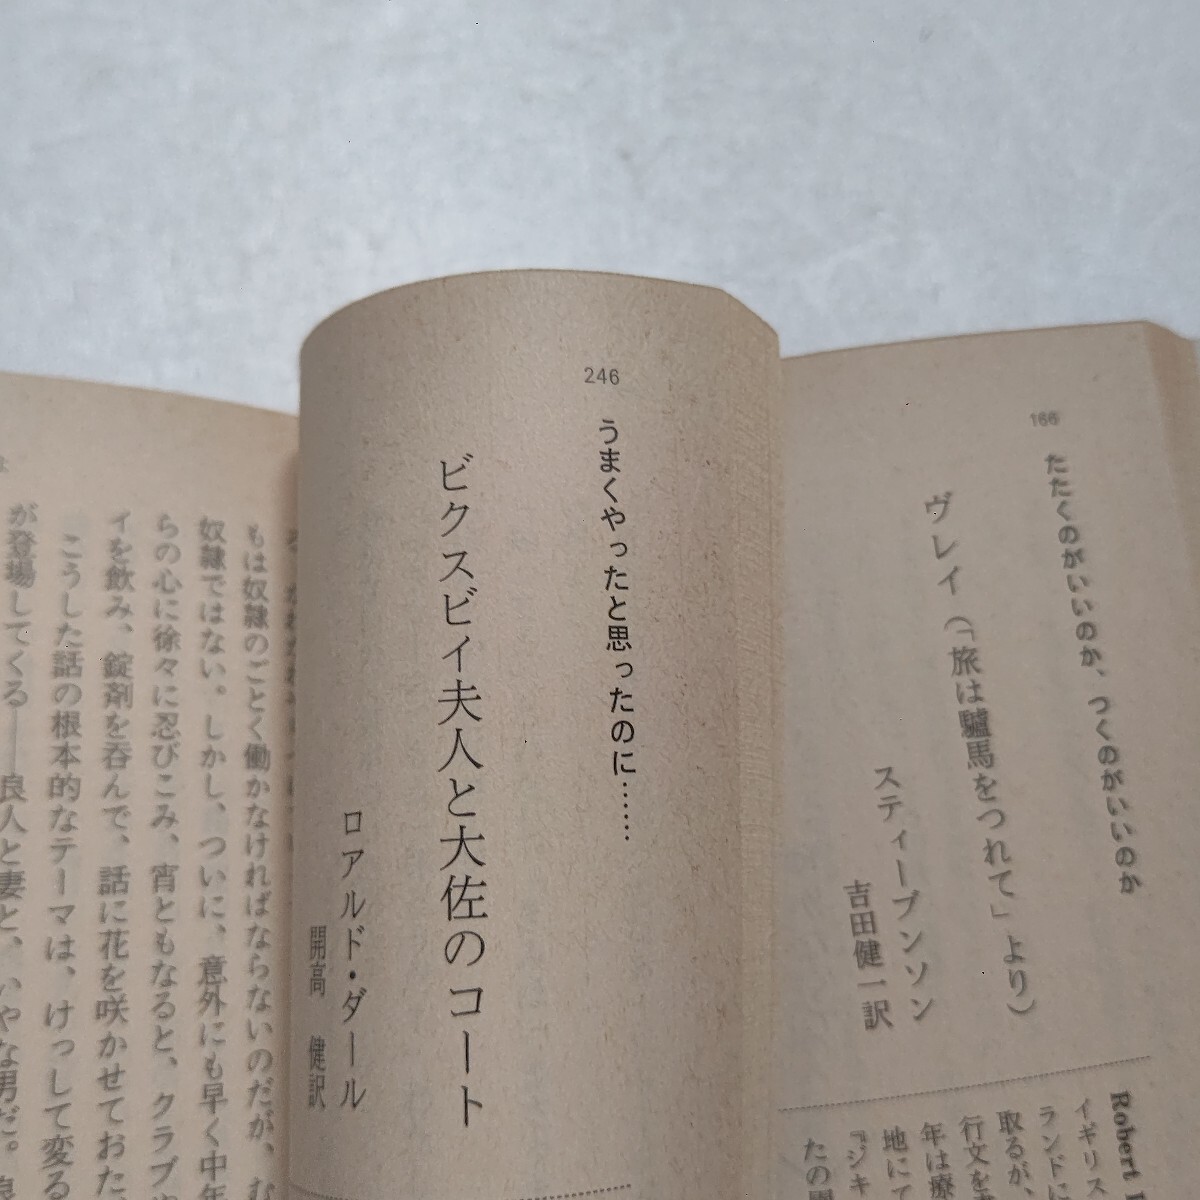 166
たたくのがいいのか、つくのがいいのか
ヴレイ（「旅は驢馬をつれて」より）
スティーブンソン
吉田健一訳
Robert
イギリス
ランドに
取るが、
行文を
年は療
地にて
『ジキ
たの
246
うまくやったと思ったのに……
ビクスビイ夫人と大佐のコート
ロアルド・ダール
開高　健訳
もは奴隷のごとく働かなければならないのだが、む
奴隷ではない。しかし、ついに、意外にも早く中年
らの心に徐々に忍びこみ、宵ともなると、クラブや
イを飲み、錠剤を呑んで、話に花を咲かせておた
こうした話の根本的なテーマは、けっして変る
が登場してくる――良人と妻と、いやな男だ。良